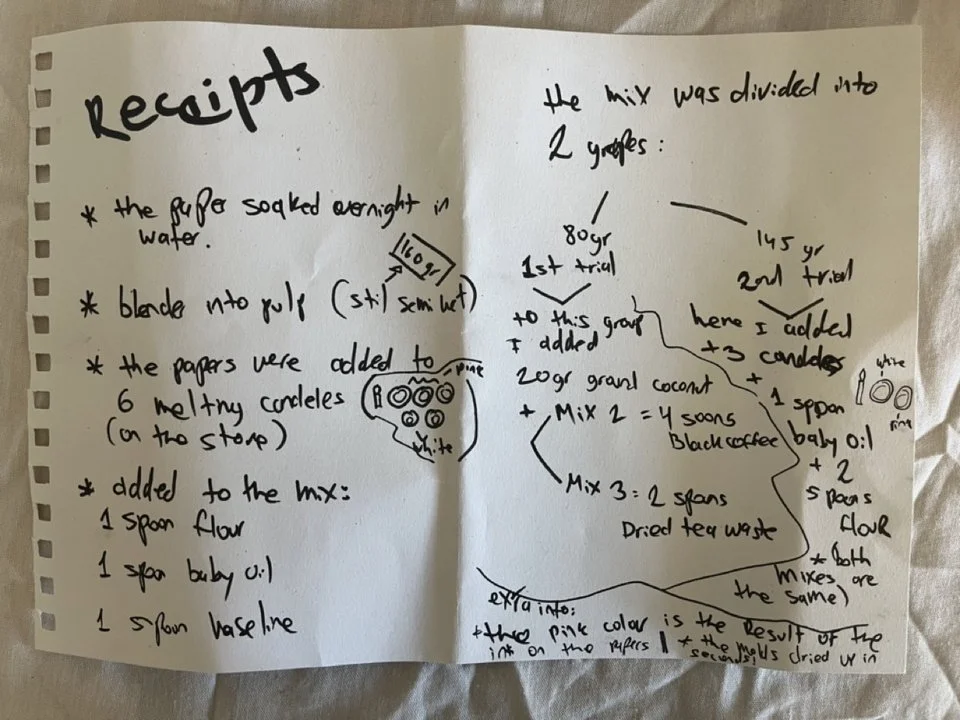 Receipts
* the paper soaked overnight in
water.
160gr
* blender into pulp (stil semi wet)
* the papers were added to
6 meltny candeles
(on the stove)
pink
white
* added to the mix:
1 spoon flour
1 spon baby oil
1 spoon baseline
the mix was divided into
2 gropes:
80gr
1st trial
to this group
I added
20gr granl coconut
+ Mix 2 = 4 soons
Black coffee
Mix 3 = 2 spans
Dried tea waste
145 gr
2nd trial
here I added
+3 candeles
white
pink
+
1 sppon
baby oil
+ 2
spoons
flour
* both
mixes are
the same)
extra info:
+ the pink color is the Result of the
ink on the papers
* the molds dried up in
seconds!